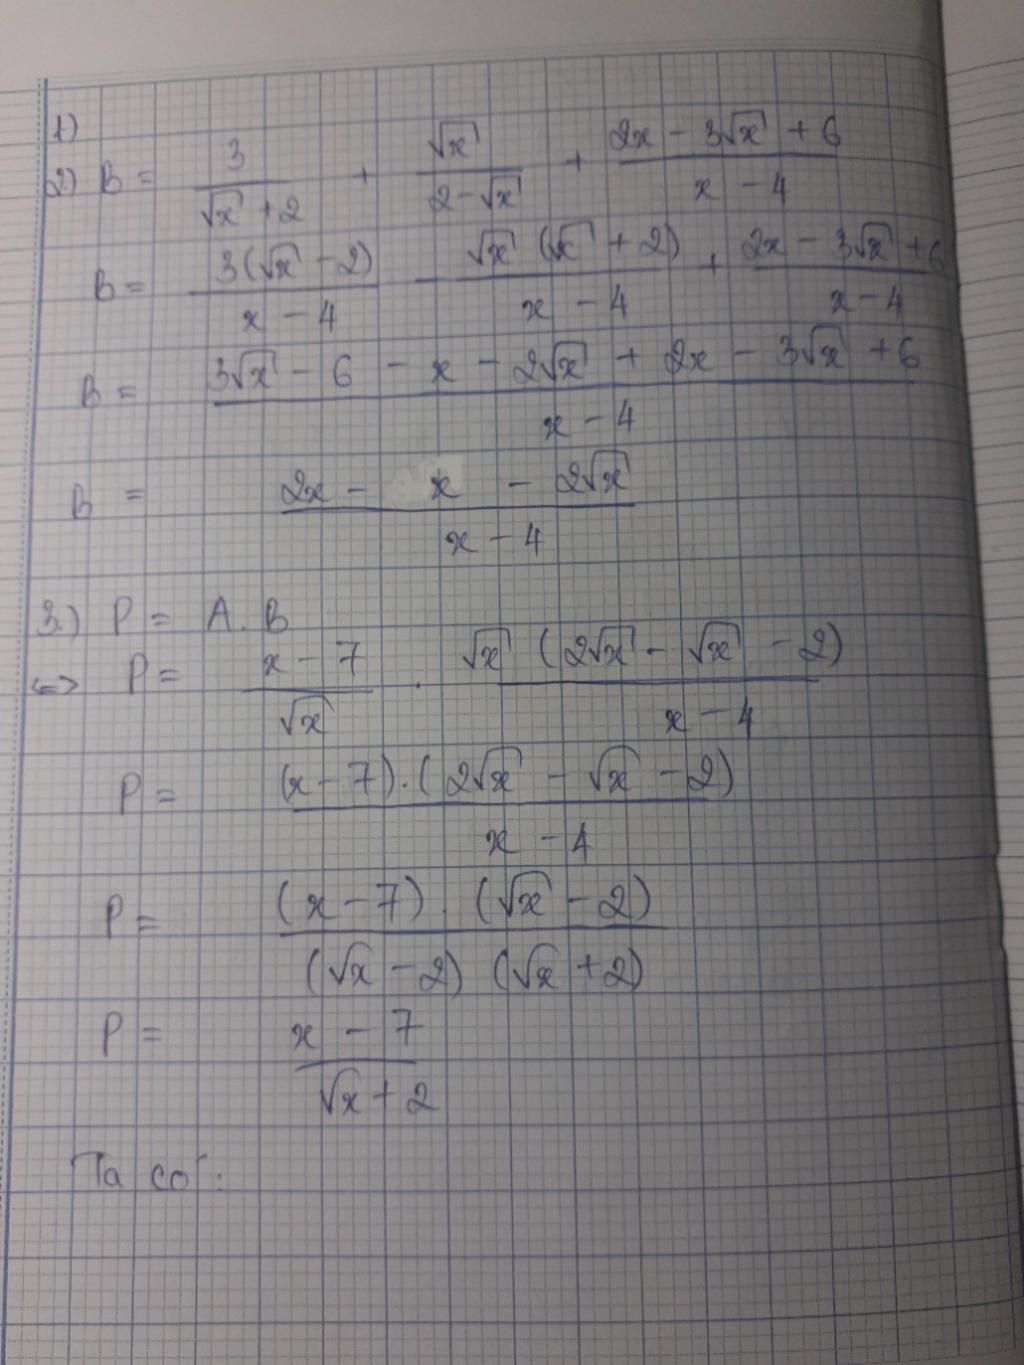 1)
2) B = 3/(√x + 2) + √x/(2 - √x) + (2x - 3√x + 6)/(x - 4)
B = 3(√x - 2)/(x - 4) - √x (√x + 2)/(x - 4) + (2x - 3√x + 6)/(x - 4)
B = (3√x - 6 - x - 2√x + 2x - 3√x + 6)/(x - 4)
B = (2x - x - 2√x)/(x - 4)
3.) P = A. B
<=> P = (x - 7)/√x . √x (2√x - √x - 2)/(x - 4)
P = (x - 7).(2√x - √x - 2)/(x - 4)
P = (x - 7).(√x - 2)/(√x - 2) (√x + 2)
P = (x - 7)/(√x + 2)
Ta có :